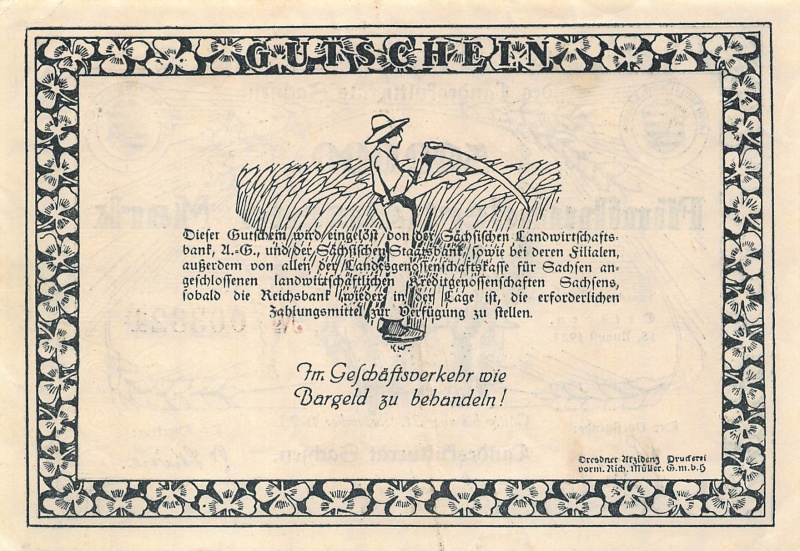 GUTSCHEIN
Dieser Gutschein wird eingelöst von der Sächsischen Landwirtschafts-
bank, A.-G., und der Sächsischen Staatsbank, sowie bei deren Filialen,
außerdem von allen der Landesgenossenschaftskasse für Sachsen an-
geschlossenen landwirtschaftlichen Kreditgenossenschaften Sachsens,
sobald die Reichsbank wieder in der Lage ist, die erforderlichen
Zahlungsmittel zur Verfügung zu stellen.
Im Geschäftsverkehr wie
Bargeld zu behandeln!
Dresdner Akzidenz Druckerei
vorm. Rich. Müller. G.m.b.H